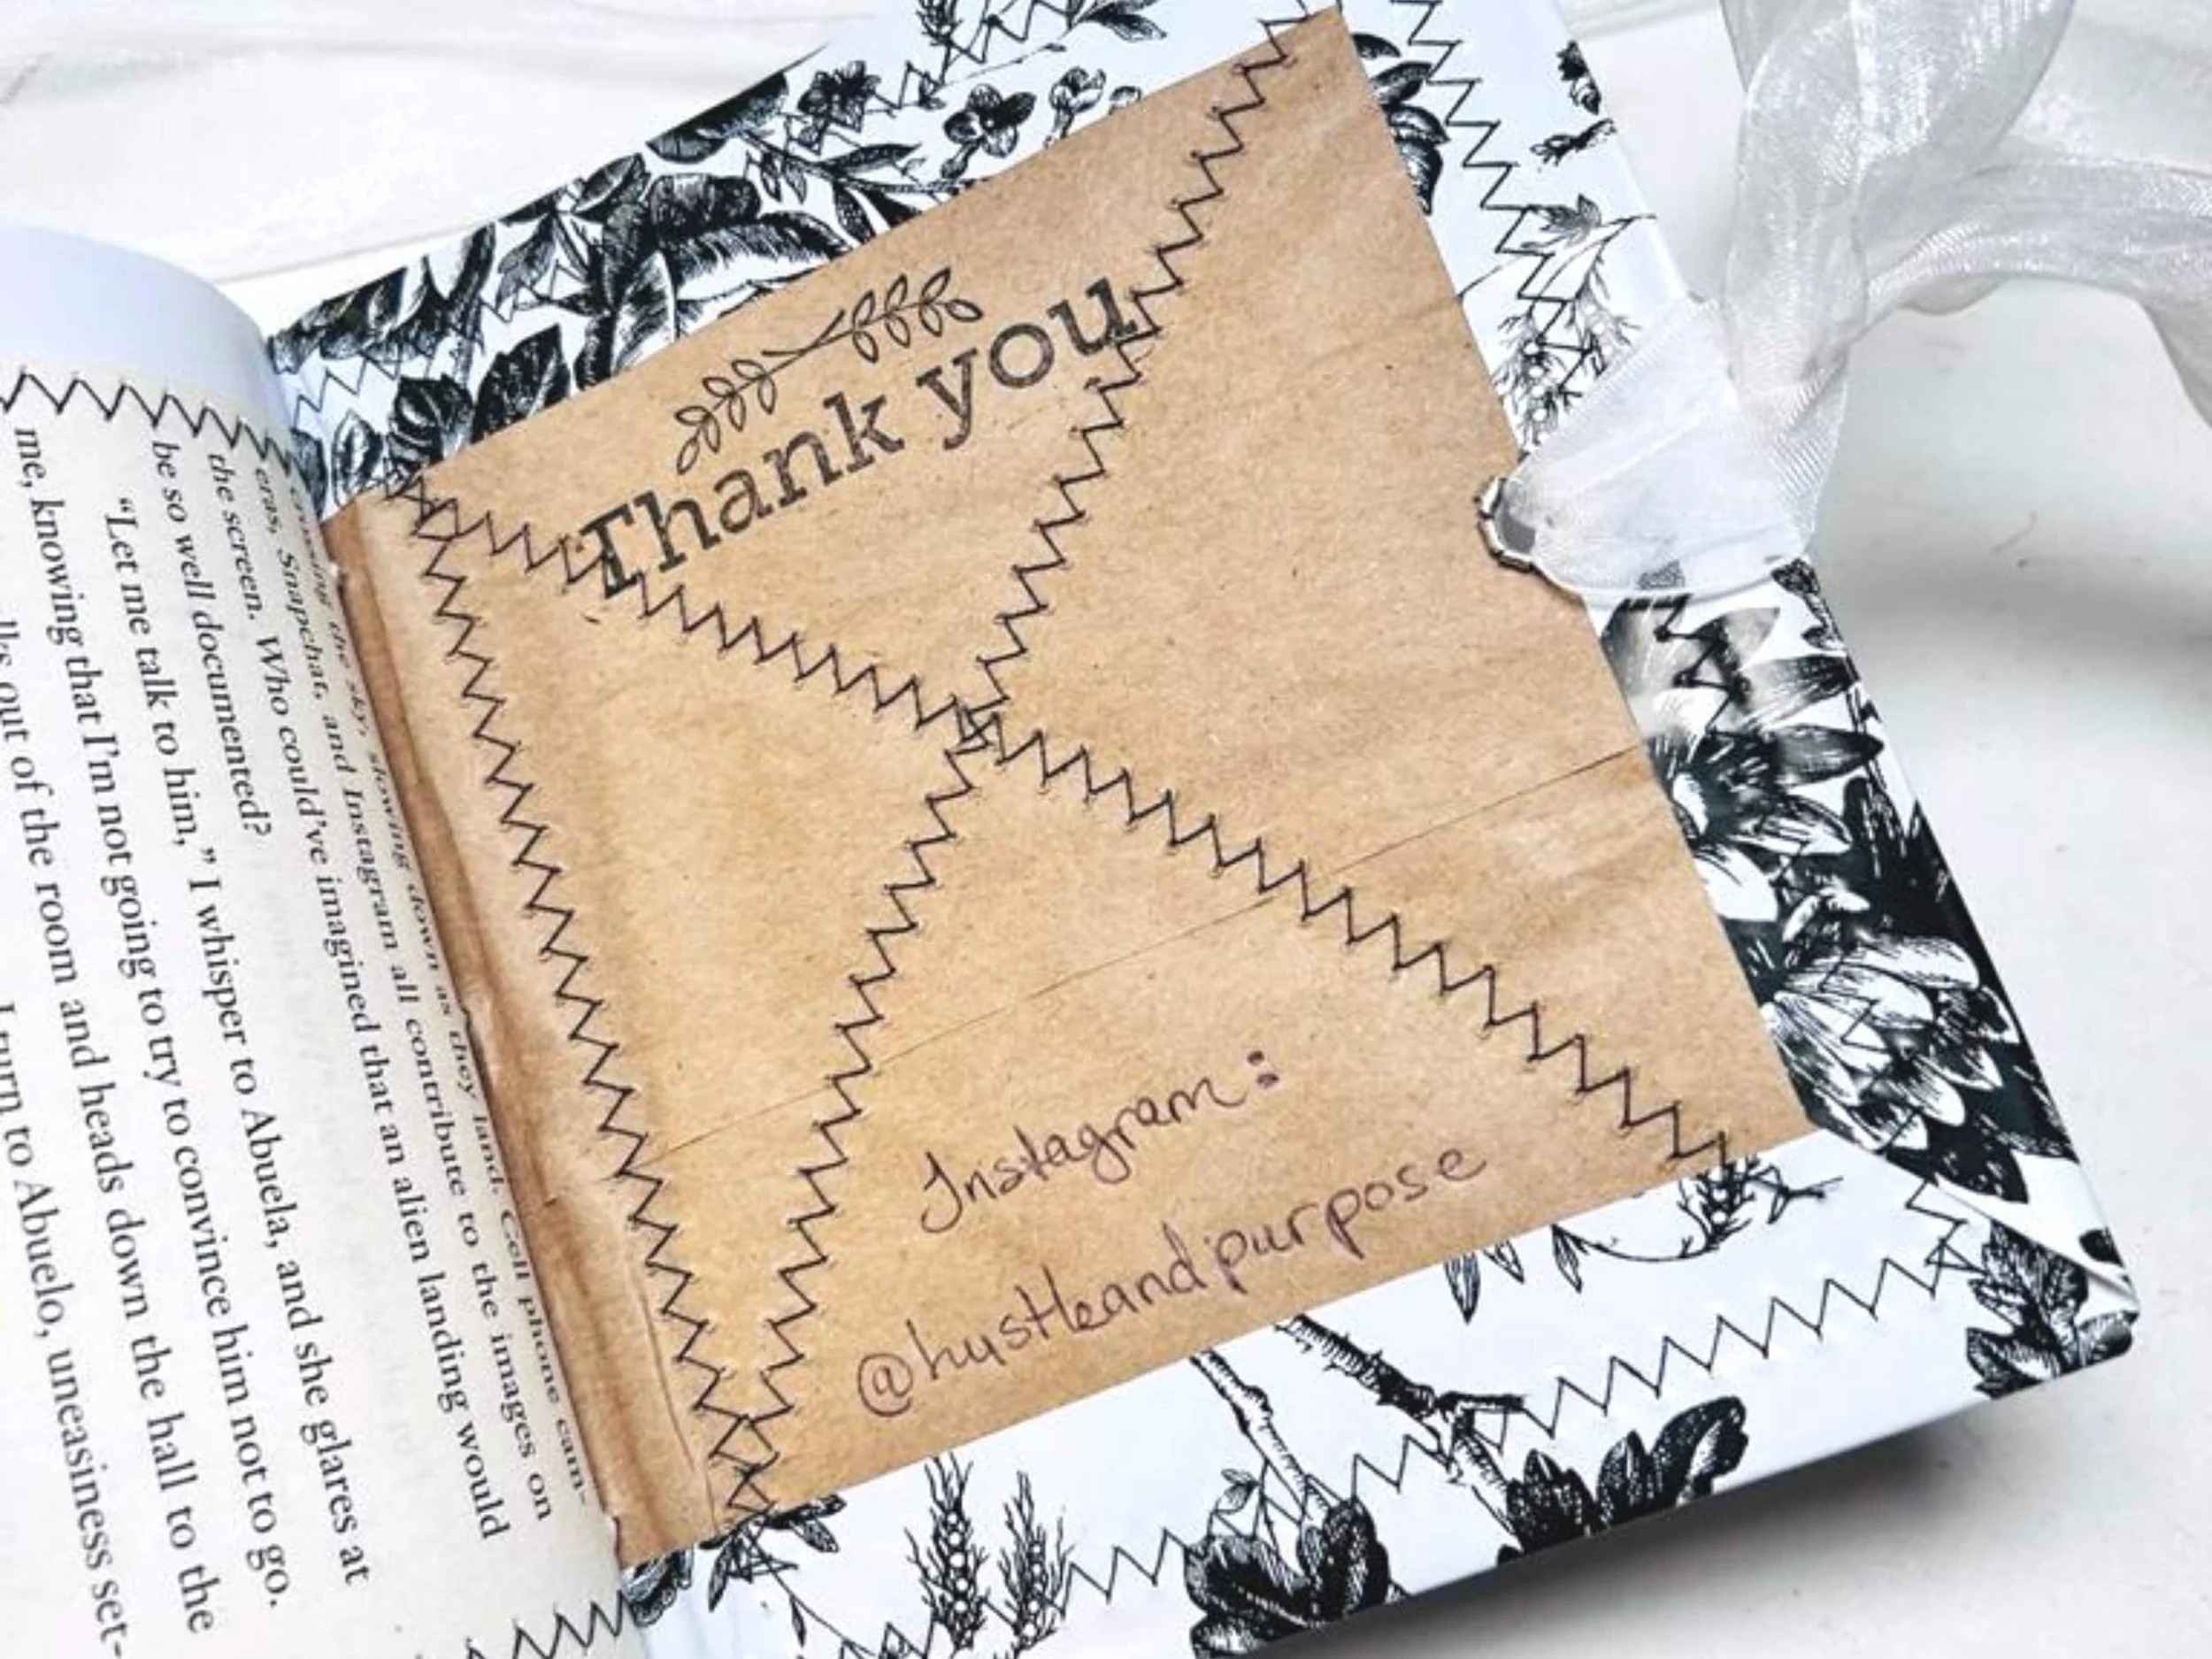 the sky, slowing down as they land. Cell phone cam-
eras, Snapchat, and Instagram all contribute to the images on
the screen. Who could've imagined that an alien landing would
be so well documented?
“Let me talk to him,” I whisper to Abuela, and she glares at
me, knowing that I'm not going to try to convince him not to go.
out of the room and heads down the hall to the
I turn to Abuelo, uneasiness set-
Thank you
Instagram:
@hustleandpurpose